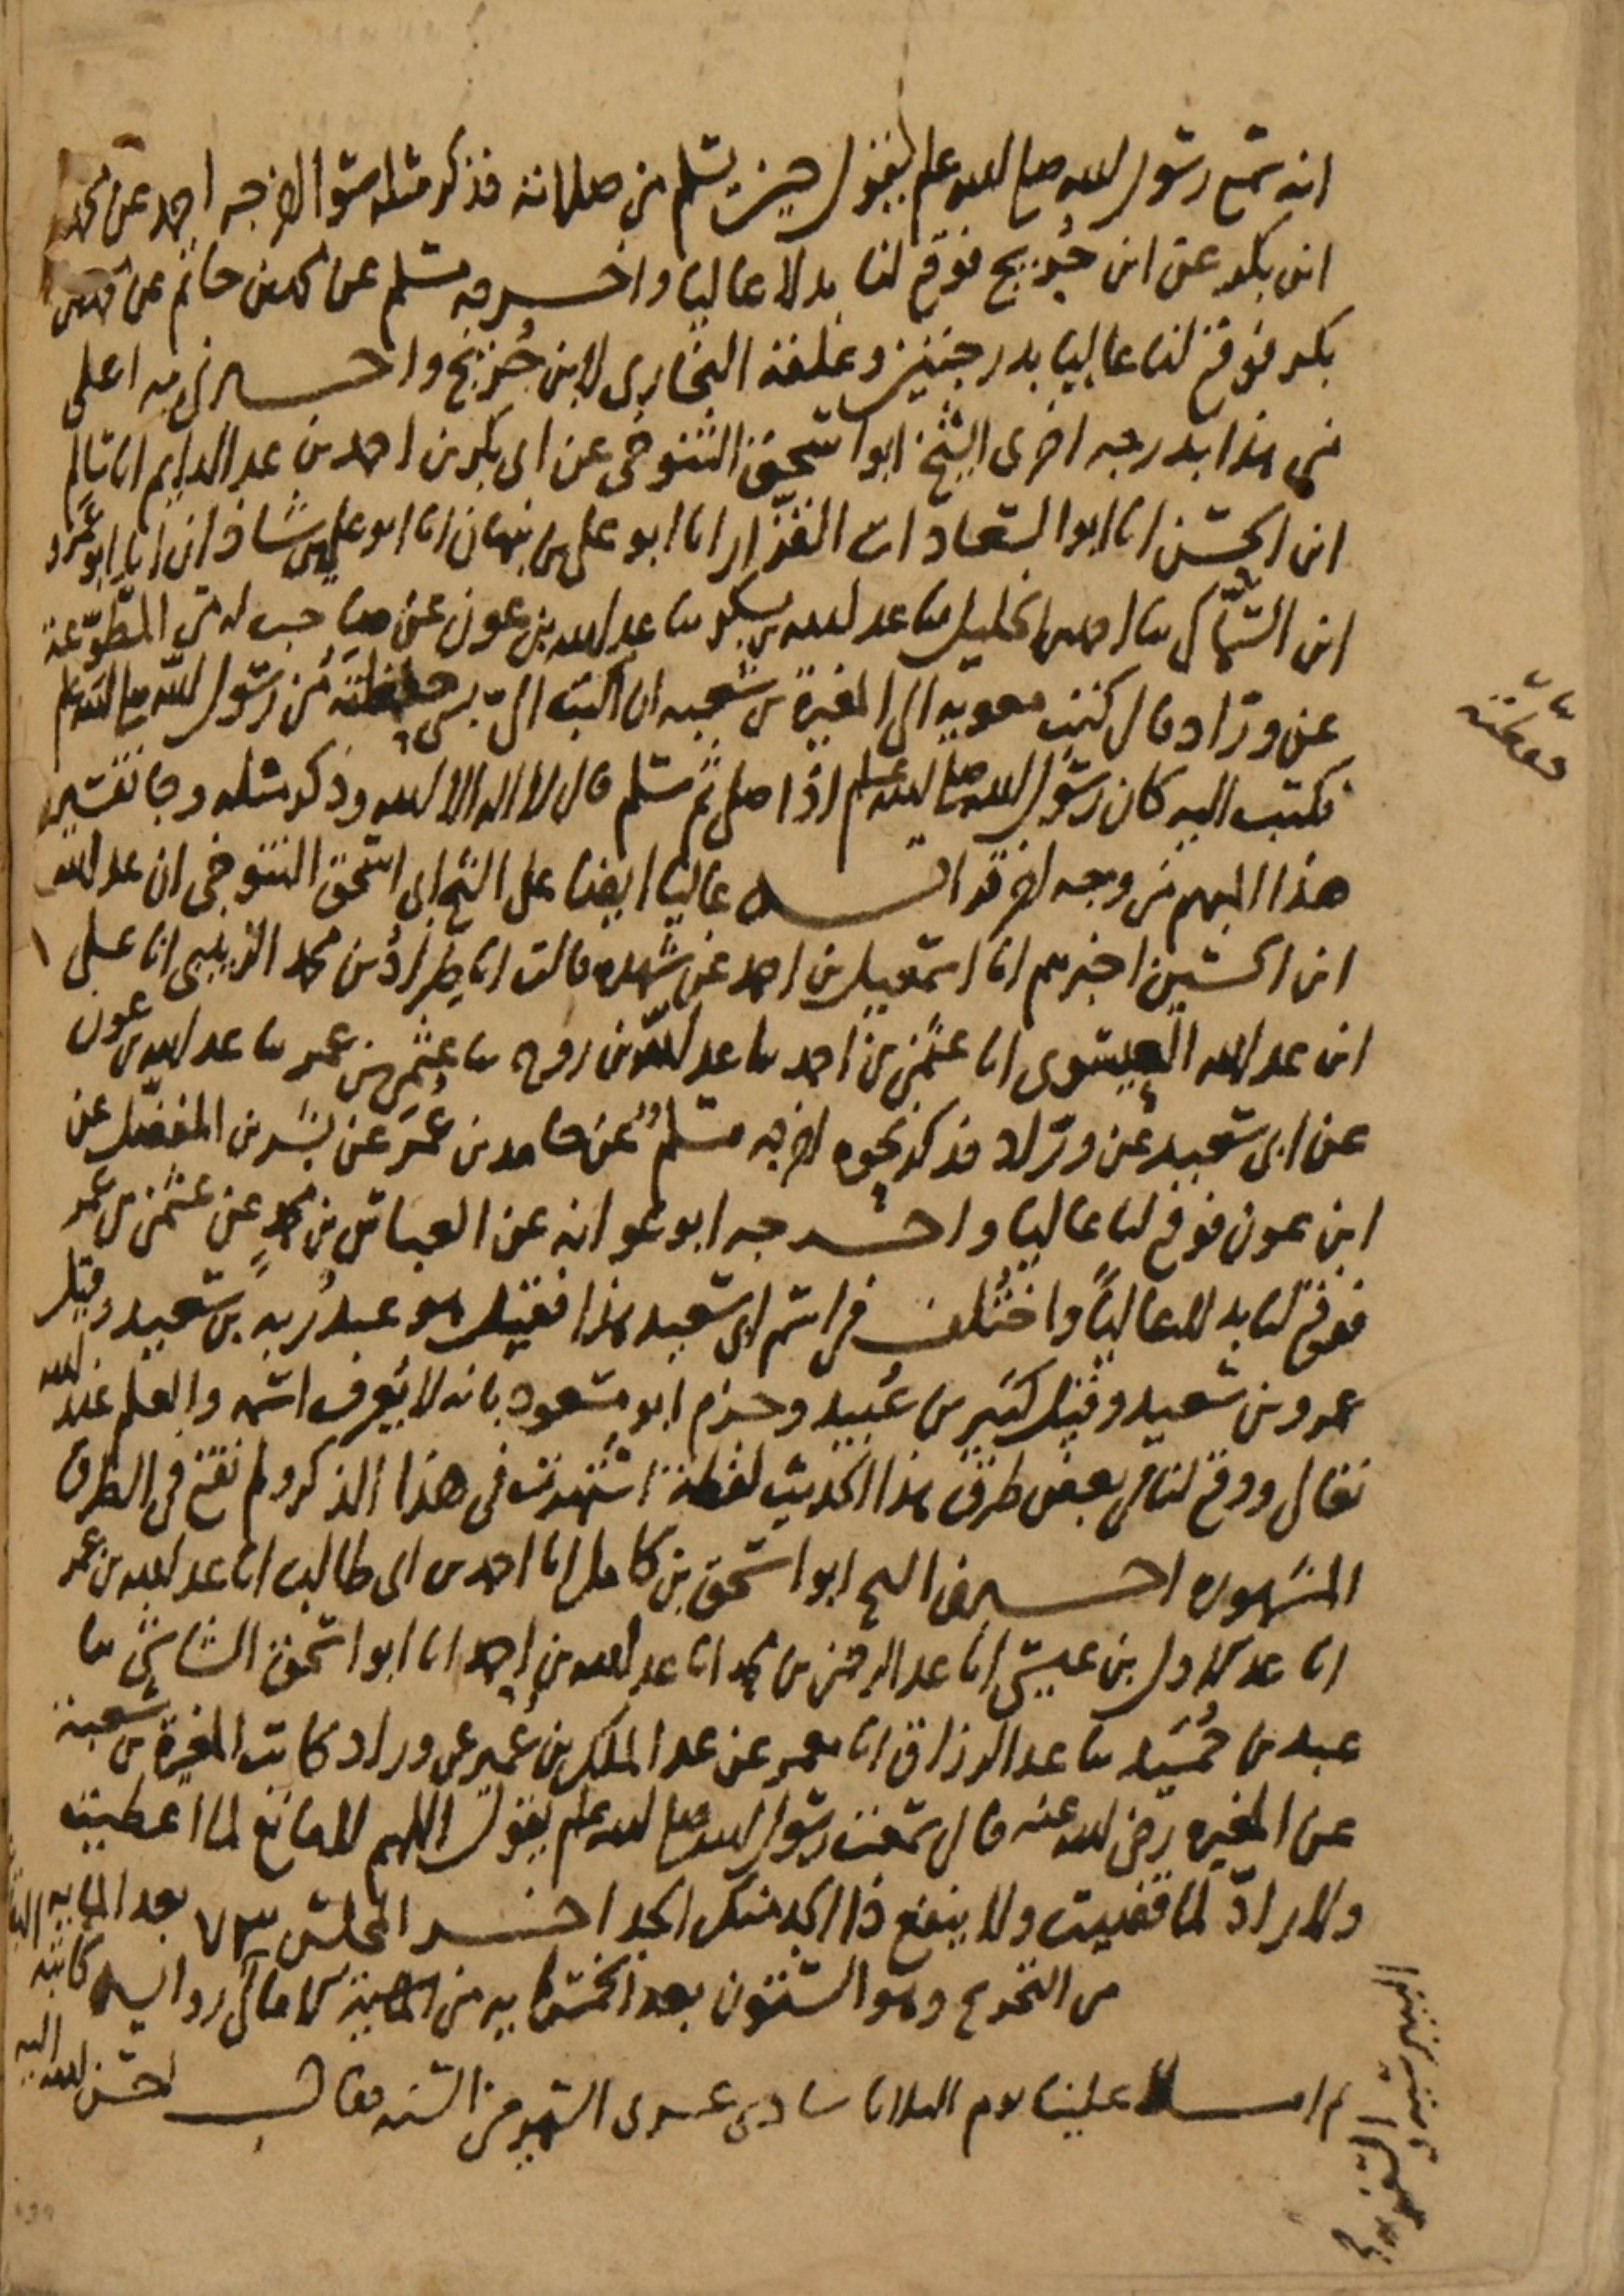 انه سمع رسول الله صلى الله عليه وسلم يقول حين يسلم من صلاته فذكر مثله سواء اخرجه احمد عن محمد
ابن بكر عن ابن جُريج فوقع لنا بدلا عاليا واخرجه مسلم عن محمد بن حاتم عن محمد بن
بكر فوقع لنا عاليا بدرجتين وعلقه البخاري لابن جُريج واخبرني به اعلى
من هذا بدرجه اخرى الشيخ ابو اسحق التنوخي عن ابي بكر بن احمد بن عبد الدايم انا سالم
ابن الحسن انا ابو السعادات القزّاز انا ابو علي بن نبهان انا ابو علي بن شاذان انا ابو عمرو
ابن السمّاك ثنا احمد بن الخليل ثنا عبد الله بن بكر ثنا عبد الله بن عون عن صاحب له من المطّوّعة
عن ورّاد قال كتب معويه الى المغيرة بن شعبه ان اكتب الىّ بشى حفظته من رسول الله صلى الله عليه وسلم
فكتب اليه كان رسول الله صلى الله عليه وسلم اذا صلى ثم سلم قال لا اله الا الله وذكر مثله وجا تفسير
هذا المبهم من وجه اخر قرات عاليا ايضا على الشيخ ابي اسحق التنوخي ان عبد الله
ابن الحسين اخبرهم انا اسمعيل بن احمد عن شهده قالت انا طِراد بن محمد الزينبي انا على
ابن عبد الله العيسوى انا عثمٰن بن احمد ثنا عبد الله بن روح ثنا عثمٰن بن عمر ثنا عبد الله بن عون
عن ابي سعيد عن ورّاد فذكر نحوه اخرجه مسلم عن حامد بن عُمَر عن بشر بن المفضّل عن
ابن عون فوقع لنا عاليا واخرجه ابو عوانه عن العباس بن محمدٍ عن عثمٰن بن عمر
فوقع لنا بدلا عالياً واختُلف في اسم ابي سعيد هذا فقيل هو عبدُ ربه بن سعيد وقيل
عمرو بن سعيد وقيل كثير بن عُبيد وجزم ابو مسعود بانه لا يُعرف اسمه والعلم عند الله
تعالى ووقع لنا في بعض طرق هذا الحديث لفظة اشتهرت في هذا الذكر ولم تقع في الطرق
المشهوره اخبرني الشيخ ابو اسحق بن كامل انا احمد بن ابي طالب انا عبد الله بن عمر
انا عبد الاول بن عيسى انا عبد الرحمٰن بن محمد انا عبد الله بن احمد انا ابو اسحق الشاشي ثنا
عبد بن حُمَيد ثنا عبد الرزاق انا معمر عن عبد الملك بن عُمير عن وراد كاتب المغيرة بن شعبة
عن المغيره رضي الله عنه قال سمعت رسول الله صلى الله عليه وسلم يقول اللهم لا مانع لما اعطيت
ولا رادّ لما قضيت ولا ينفع ذا الجد منك الجد اخر المجلس ٧٣ بعد المايه
من التخريج وهو الستون بعد الخمسمايه من الامالي رواية كاتبه
ثم املا علينا يوم الثلاثا سادس عشرى الشهر من السنه فقال احسن الله اليه